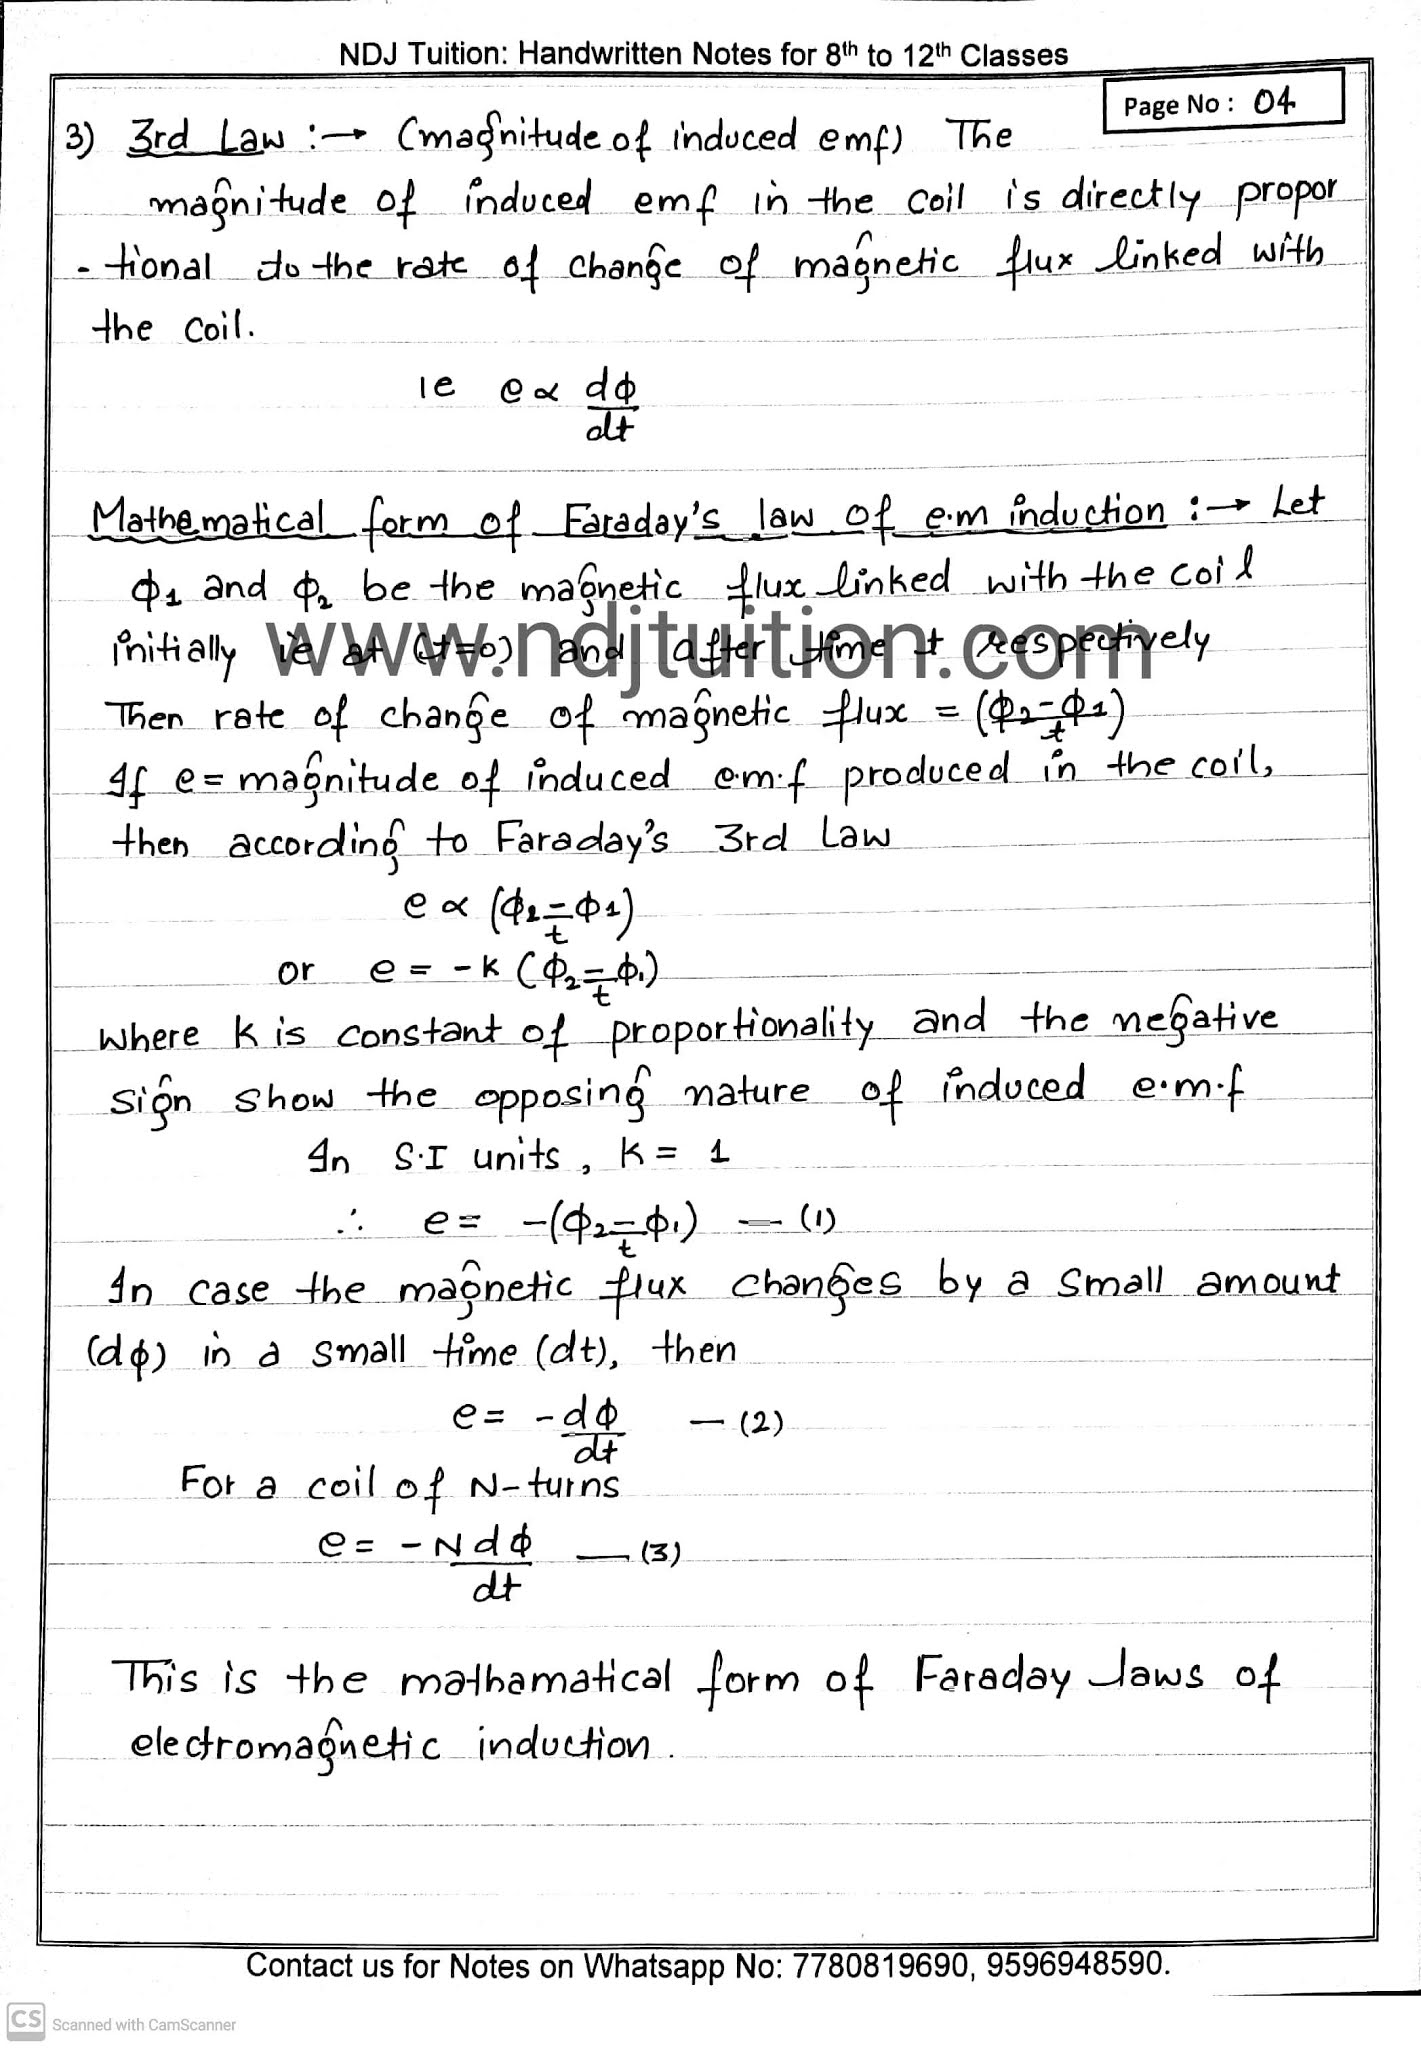 NDJ Tuition: Handwritten Notes for 8th to 12th Classes
Page No : 04
3) 3rd Law :→ (magnitude of induced emf) The
magnitude of induced emf in the coil is directly propor
- tional to the rate of change of magnetic flux linked with
the coil.
ie e ∝ dϕ/dt
Mathematical form of Faraday's law of e.m induction :→ Let
ϕ1 and ϕ2 be the magnetic flux linked with the coil
initially ie at (t=0) and after time t respectively
www.ndjtuition.com
Then rate of change of magnetic flux = (ϕ2-ϕ1)/t
If e = magnitude of induced e.m.f produced in the coil,
then according to Faraday's 3rd Law
e ∝ (ϕ2-ϕ1)/t
or e = -K (ϕ2-ϕ1)/t
where K is constant of proportionality and the negative
sign show the opposing nature of induced e.m.f
In S.I units, K = 1
∴ e = -(ϕ2-ϕ1)/t — (1)
In case the magnetic flux changes by a small amount
(dϕ) in a small time (dt), then
e = -dϕ/dt — (2)
For a coil of N-turns
e = -N dϕ/dt — (3)
This is the mathamatical form of Faraday laws of
electromagnetic induction.
Contact us for Notes on Whatsapp No: 7780819690, 9596948590.
CS Scanned with CamScanner